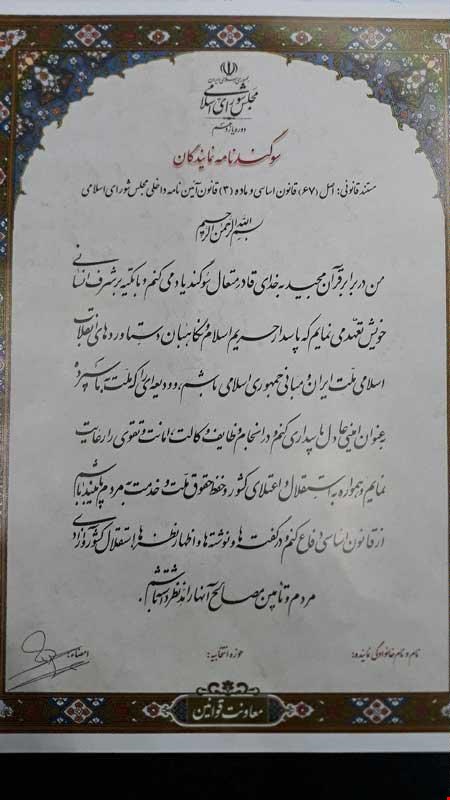 جمهوری اسلامی ایران
مجلس شورای اسلامی
دوره یازدهم
سوگندنامه نمایندگان
مستند قانونی: اصل (۶۷) قانون اساسی و ماده (۳) قانون آئین نامه داخلی مجلس شورای اسلامی
بسم الله الرحمن الرحیم
من در برابر قرآن مجید به خدای قادر متعال سوگند یاد می کنم و با تکیه بر شرف انسانی
خویش تعهد می نمایم که پاسدار حریم اسلام و نگاهبان دستاوردهای انقلاب
اسلامی ملت ایران و مبانی جمهوری اسلامی باشم، و ودیعه ای را که ملت به ما سپرده
به عنوان امینی عادل پاسداری کنم و در انجام وظایف وکالت، امانت و تقوی را رعایت
نمایم و همواره به استقلال و اعتلای کشور و حفظ حقوق ملت و خدمت به مردم پایبند باشم
از قانون اساسی دفاع کنم و در گفته ها و نوشته ها و اظهارنظرها، استقلال کشور و آزادی
مردم و تأمین مصالح آنها را مد نظر داشته باشم.
نام و نام خانوادگی نماینده: حوزه انتخابیه: امضاء:
معاونت قوانین